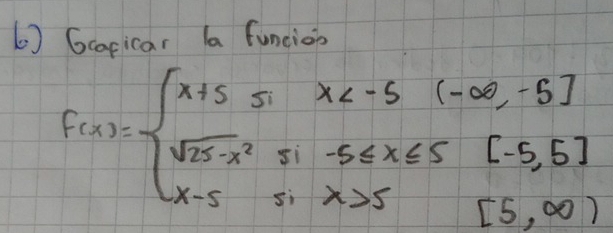 b) Graficar la función
f(x)= { x+5 si x < -5 (-∞, -5]
√25-x² si -5 ≤ x ≤ 5 [-5,5]
x-5 si x > 5 [5, ∞)